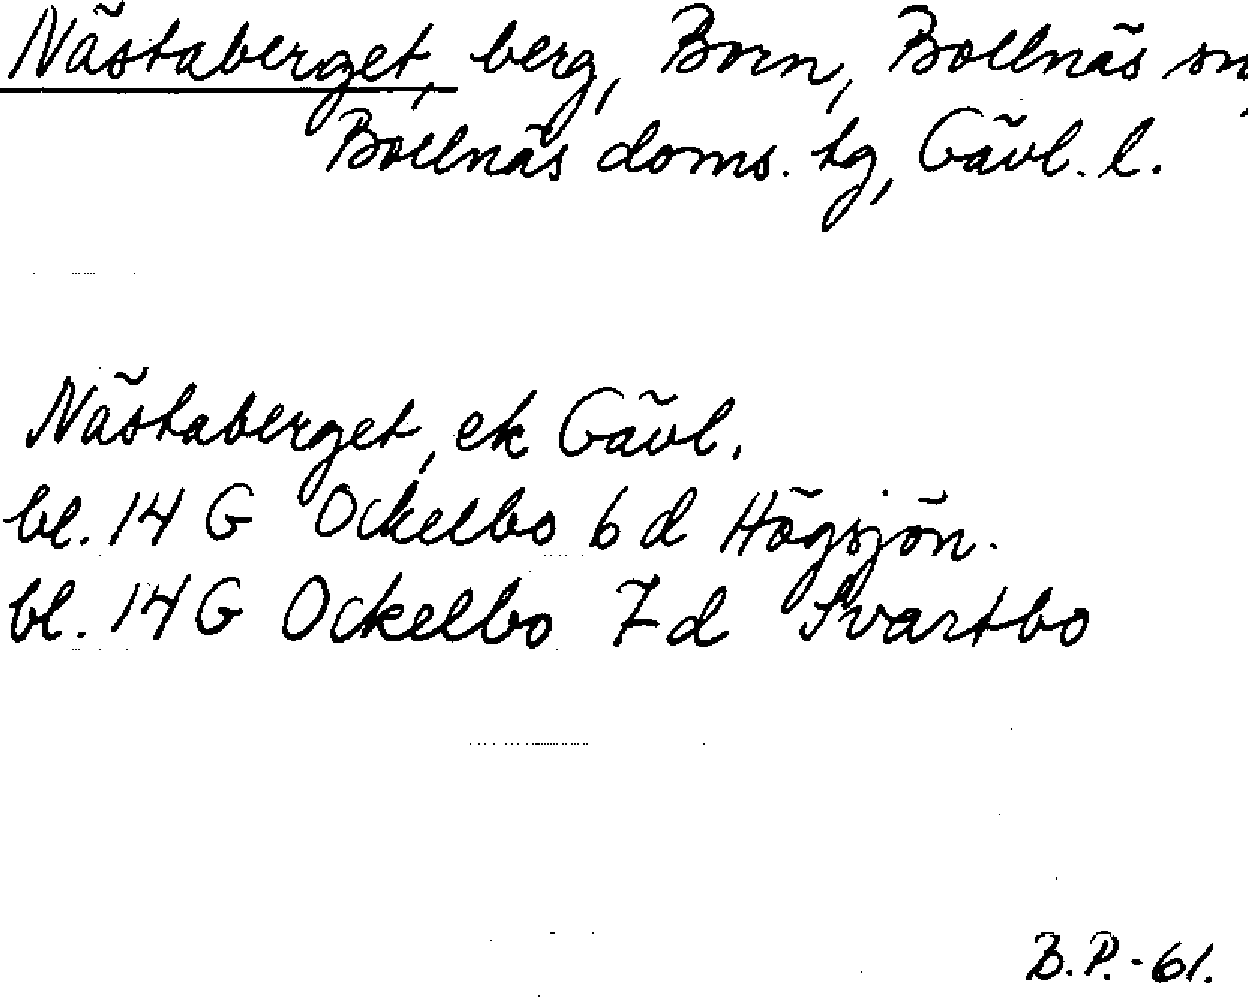 Nästaberget, berg, Born, Bollnäs sn,
Bollnäs doms. tg, Gävl. l.
Nästaberget, ek Gävl.
bl. 14 G Ockelbo 6 d Högsjön.
bl. 14 G Ockelbo 7 d Svartbo
B.P.-61.